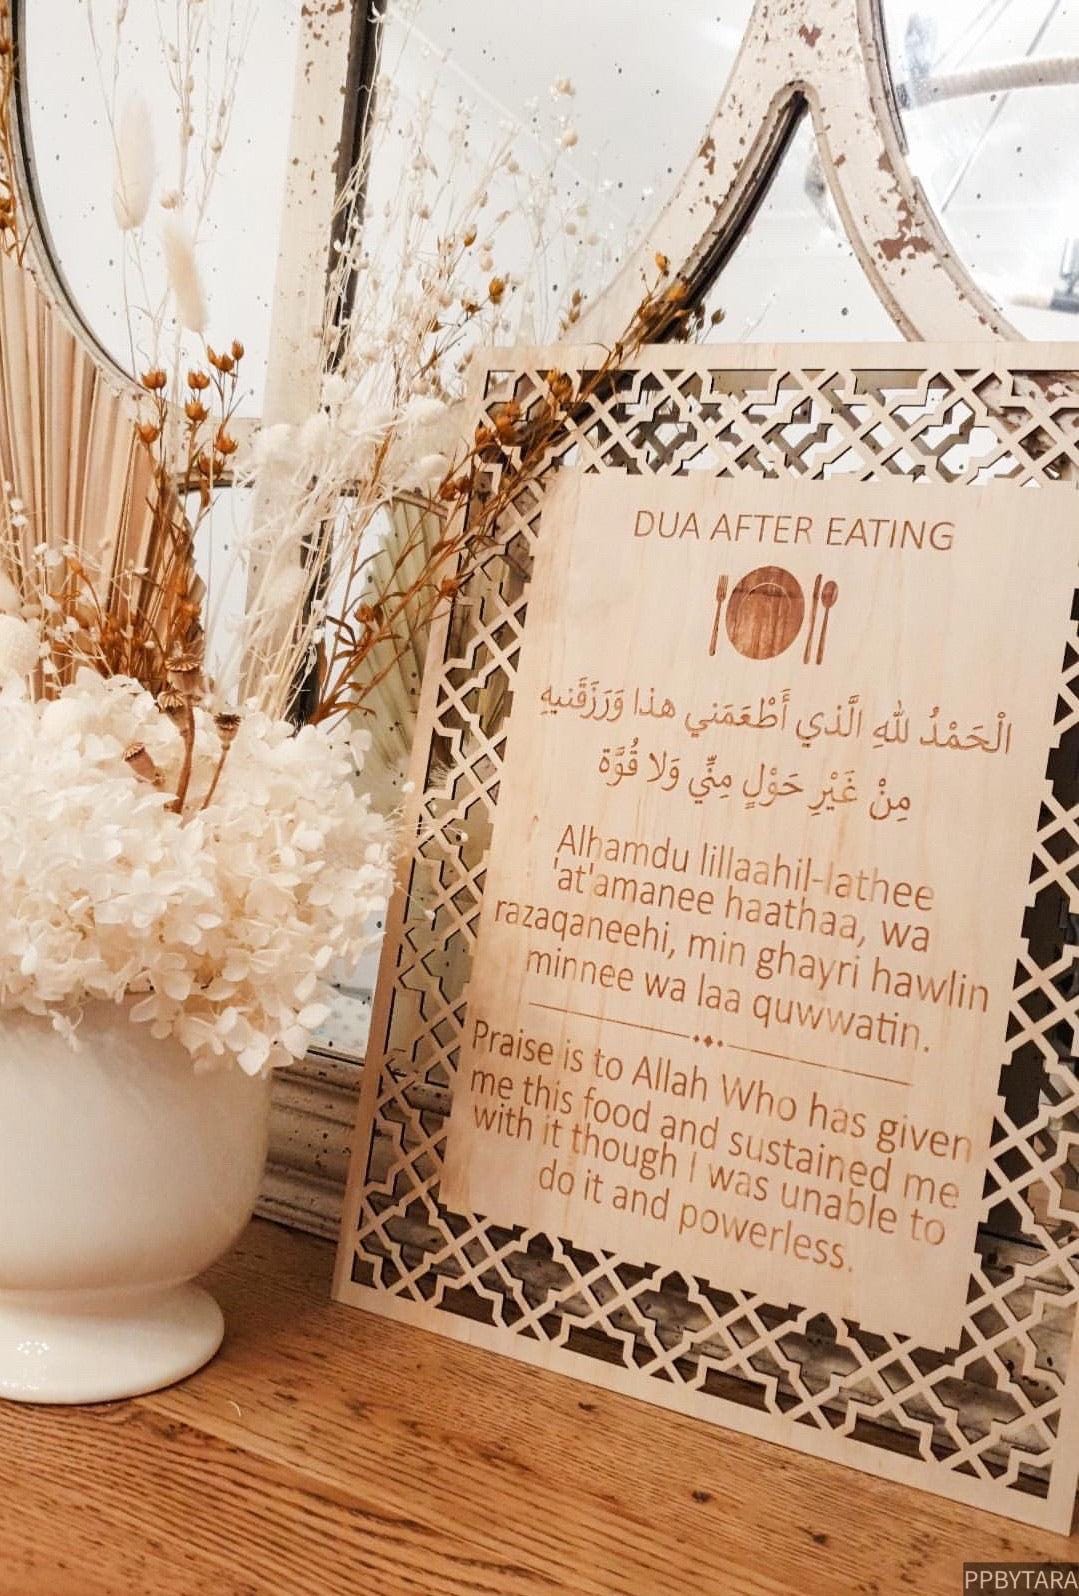 DUA AFTER EATING
الْحَمْدُ لِلَّهِ الَّذِي أَطْعَمَنِي هذا وَرَزَقَنِيهِ
مِنْ غَيْرِ حَوْلٍ مِنِّي وَلا قُوَّة
Alhamdu lillaahil-lathee
'at'amanee haathaa, wa
razaqaneehi, min ghayri hawlin
minnee wa laa quwwatin.
Praise is to Allah Who has given
me this food and sustained me
with it though I was unable to
do it and powerless.
PPBYTARA